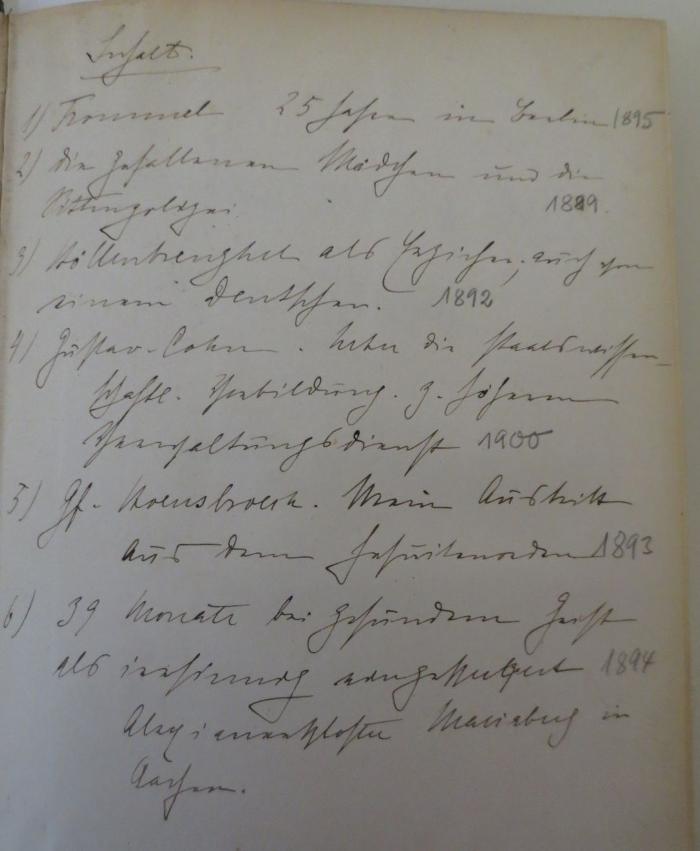 Inhalt.
1) Frommel 25 Jahre in Berlin 1895
2) Die gefallenen Mädchen und die
Sittenpolizei. 1889.
3) Höllenbreughel als Erzieher, auch von
einem Deutschen. 1892
4) Gustav Cohn. Ueber die staatswissen-
schaftl. Vorbildung z. höheren
Verwaltungsdienst 1900
5) Gf. Hoensbroech. Mein Austritt
aus dem Jesuitenorden 1893
6) 39 Monate bei gesundem Geist
als irrsinnig eingekerkert 1894
Alexianerkloster Mariaberg in
Aachen.